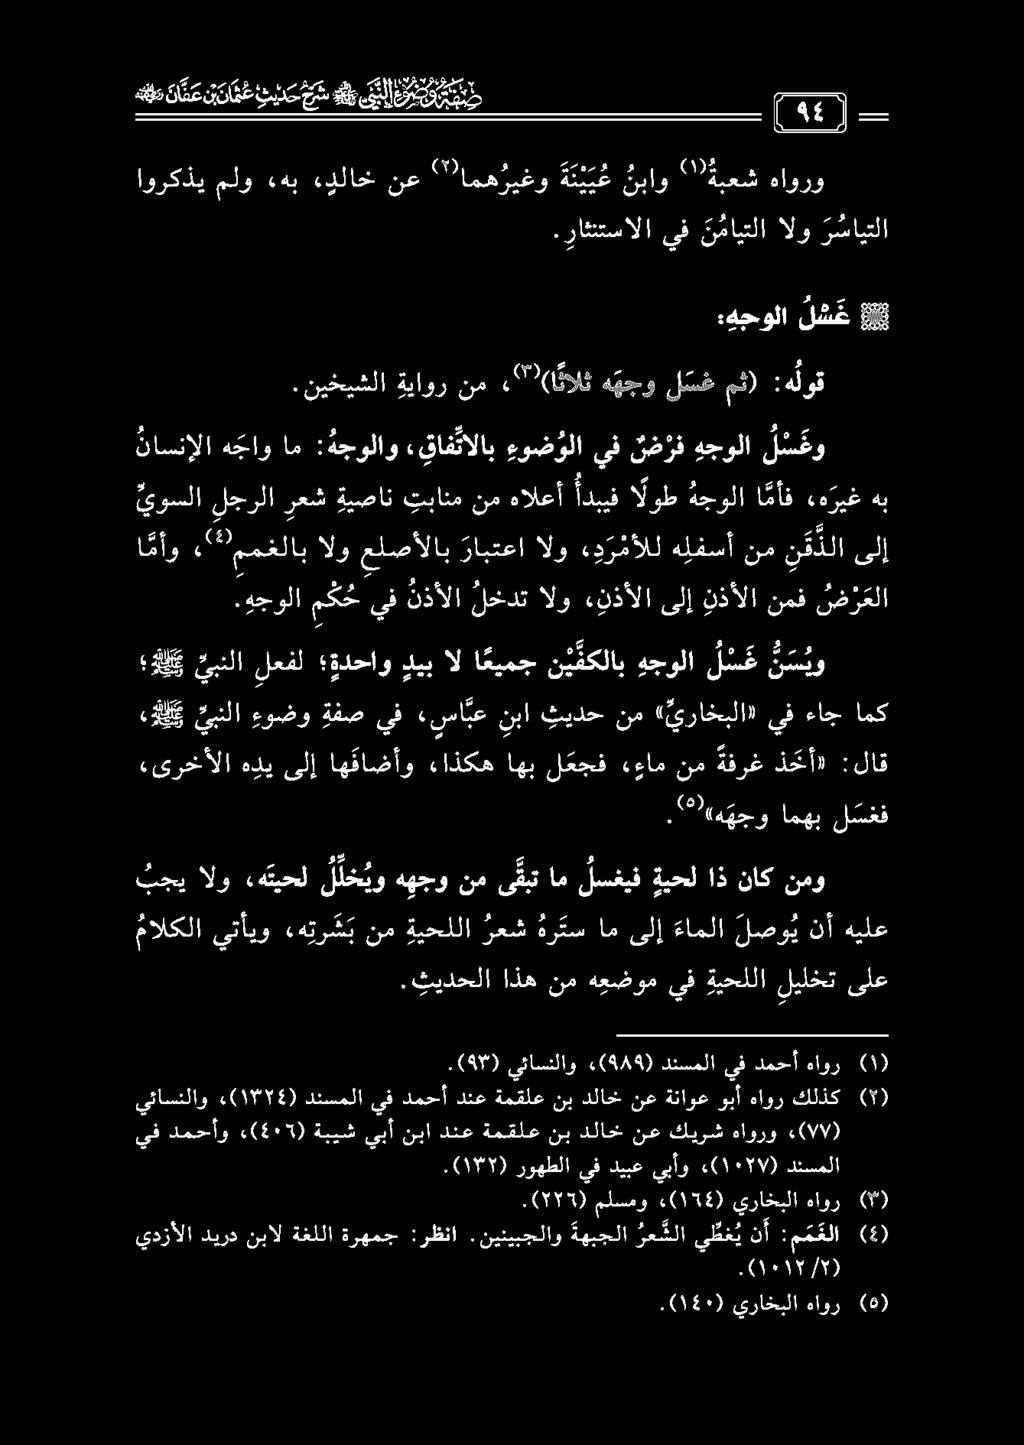 صفة وضوء النبي ﷺ شرح حديث عثمان بن عفان رضي الله عنه
٩٤
ورواه شعبةُ(١) وابنُ عُيَيْنَةَ وغيرُهما(٢) عن خالدٍ، به، ولم يذكروا
التياسُرَ ولا التيامُنَ في الاستنثارِ.
غَسْلُ الوجهِ:
قولُه: (ثم غسَل وجهَه ثلاثًا)(٣)، من روايةِ الشيخين.
وغَسْلُ الوجهِ فرْضٌ في الوُضوءِ بالاتِّفاقِ، والوجهُ: ما واجَه الإنسانُ
به غيرَه، فأمَّا الوجهُ طولًا فيبدأُ أعلاه من منابتِ ناصيةِ شعرِ الرجلِ السويِّ
إلى الذَّقَنِ من أسفلِه للأمْرَدِ، ولا اعتبارَ بالأصلعِ ولا بالغممِ(٤)، وأمَّا
العَرْضُ فمن الأذنِ إلى الأذنِ، ولا تدخلُ الأذنُ في حُكْمِ الوجهِ.
ويُسَنُّ غَسْلُ الوجهِ بالكفَّيْنِ جميعًا لا بيدٍ واحدةٍ؛ لفعلِ النبيِّ ﷺ؛
كما جاء في «البخاريِّ» من حديثِ ابنِ عبَّاسٍ، في صفةِ وضوءِ النبيِّ ﷺ،
قال: «أخَذ غرفةً من ماءٍ، فجعَل بها هكذا، وأضافَها إلى يدِه الأخرى،
فغسَل بهما وجهَه»(٥).
ومن كان ذا لحيةٍ فيغسلُ ما تبقَّى من وجهِه ويُخلِّلُ لحيتَه، ولا يجبُ
عليه أن يُوصلَ الماءَ إلى ما ستَرهُ شعرُ اللحيةِ من بَشَرتِه، ويأتي الكلامُ
على تخليلِ اللحيةِ في موضعِه من هذا الحديثِ.
(١) رواه أحمد في المسند (٩٨٩)، والنسائي (٩٣).
(٢) كذلك رواه أبو عوانة عن خالد بن علقمة عند أحمد في المسند (١٣٢٤)، والنسائي
(٧٧)، ورواه شريك عن خالد بن علقمة عند ابن أبي شيبة (٤٠٦)، وأحمد في
المسند (١٠٢٧)، وأبي عبيد في الطهور (١٣٢).
(٣) رواه البخاري (١٦٤)، ومسلم (٢٢٦).
(٤) الغَمَم: أَن يُغطِّي الشَّعرُ الجبهةَ والجبينين. انظر: جمهرة اللغة لابن دريد الأزدي
(١٠١٢/٢).
(٥) رواه البخاري (١٤٠).